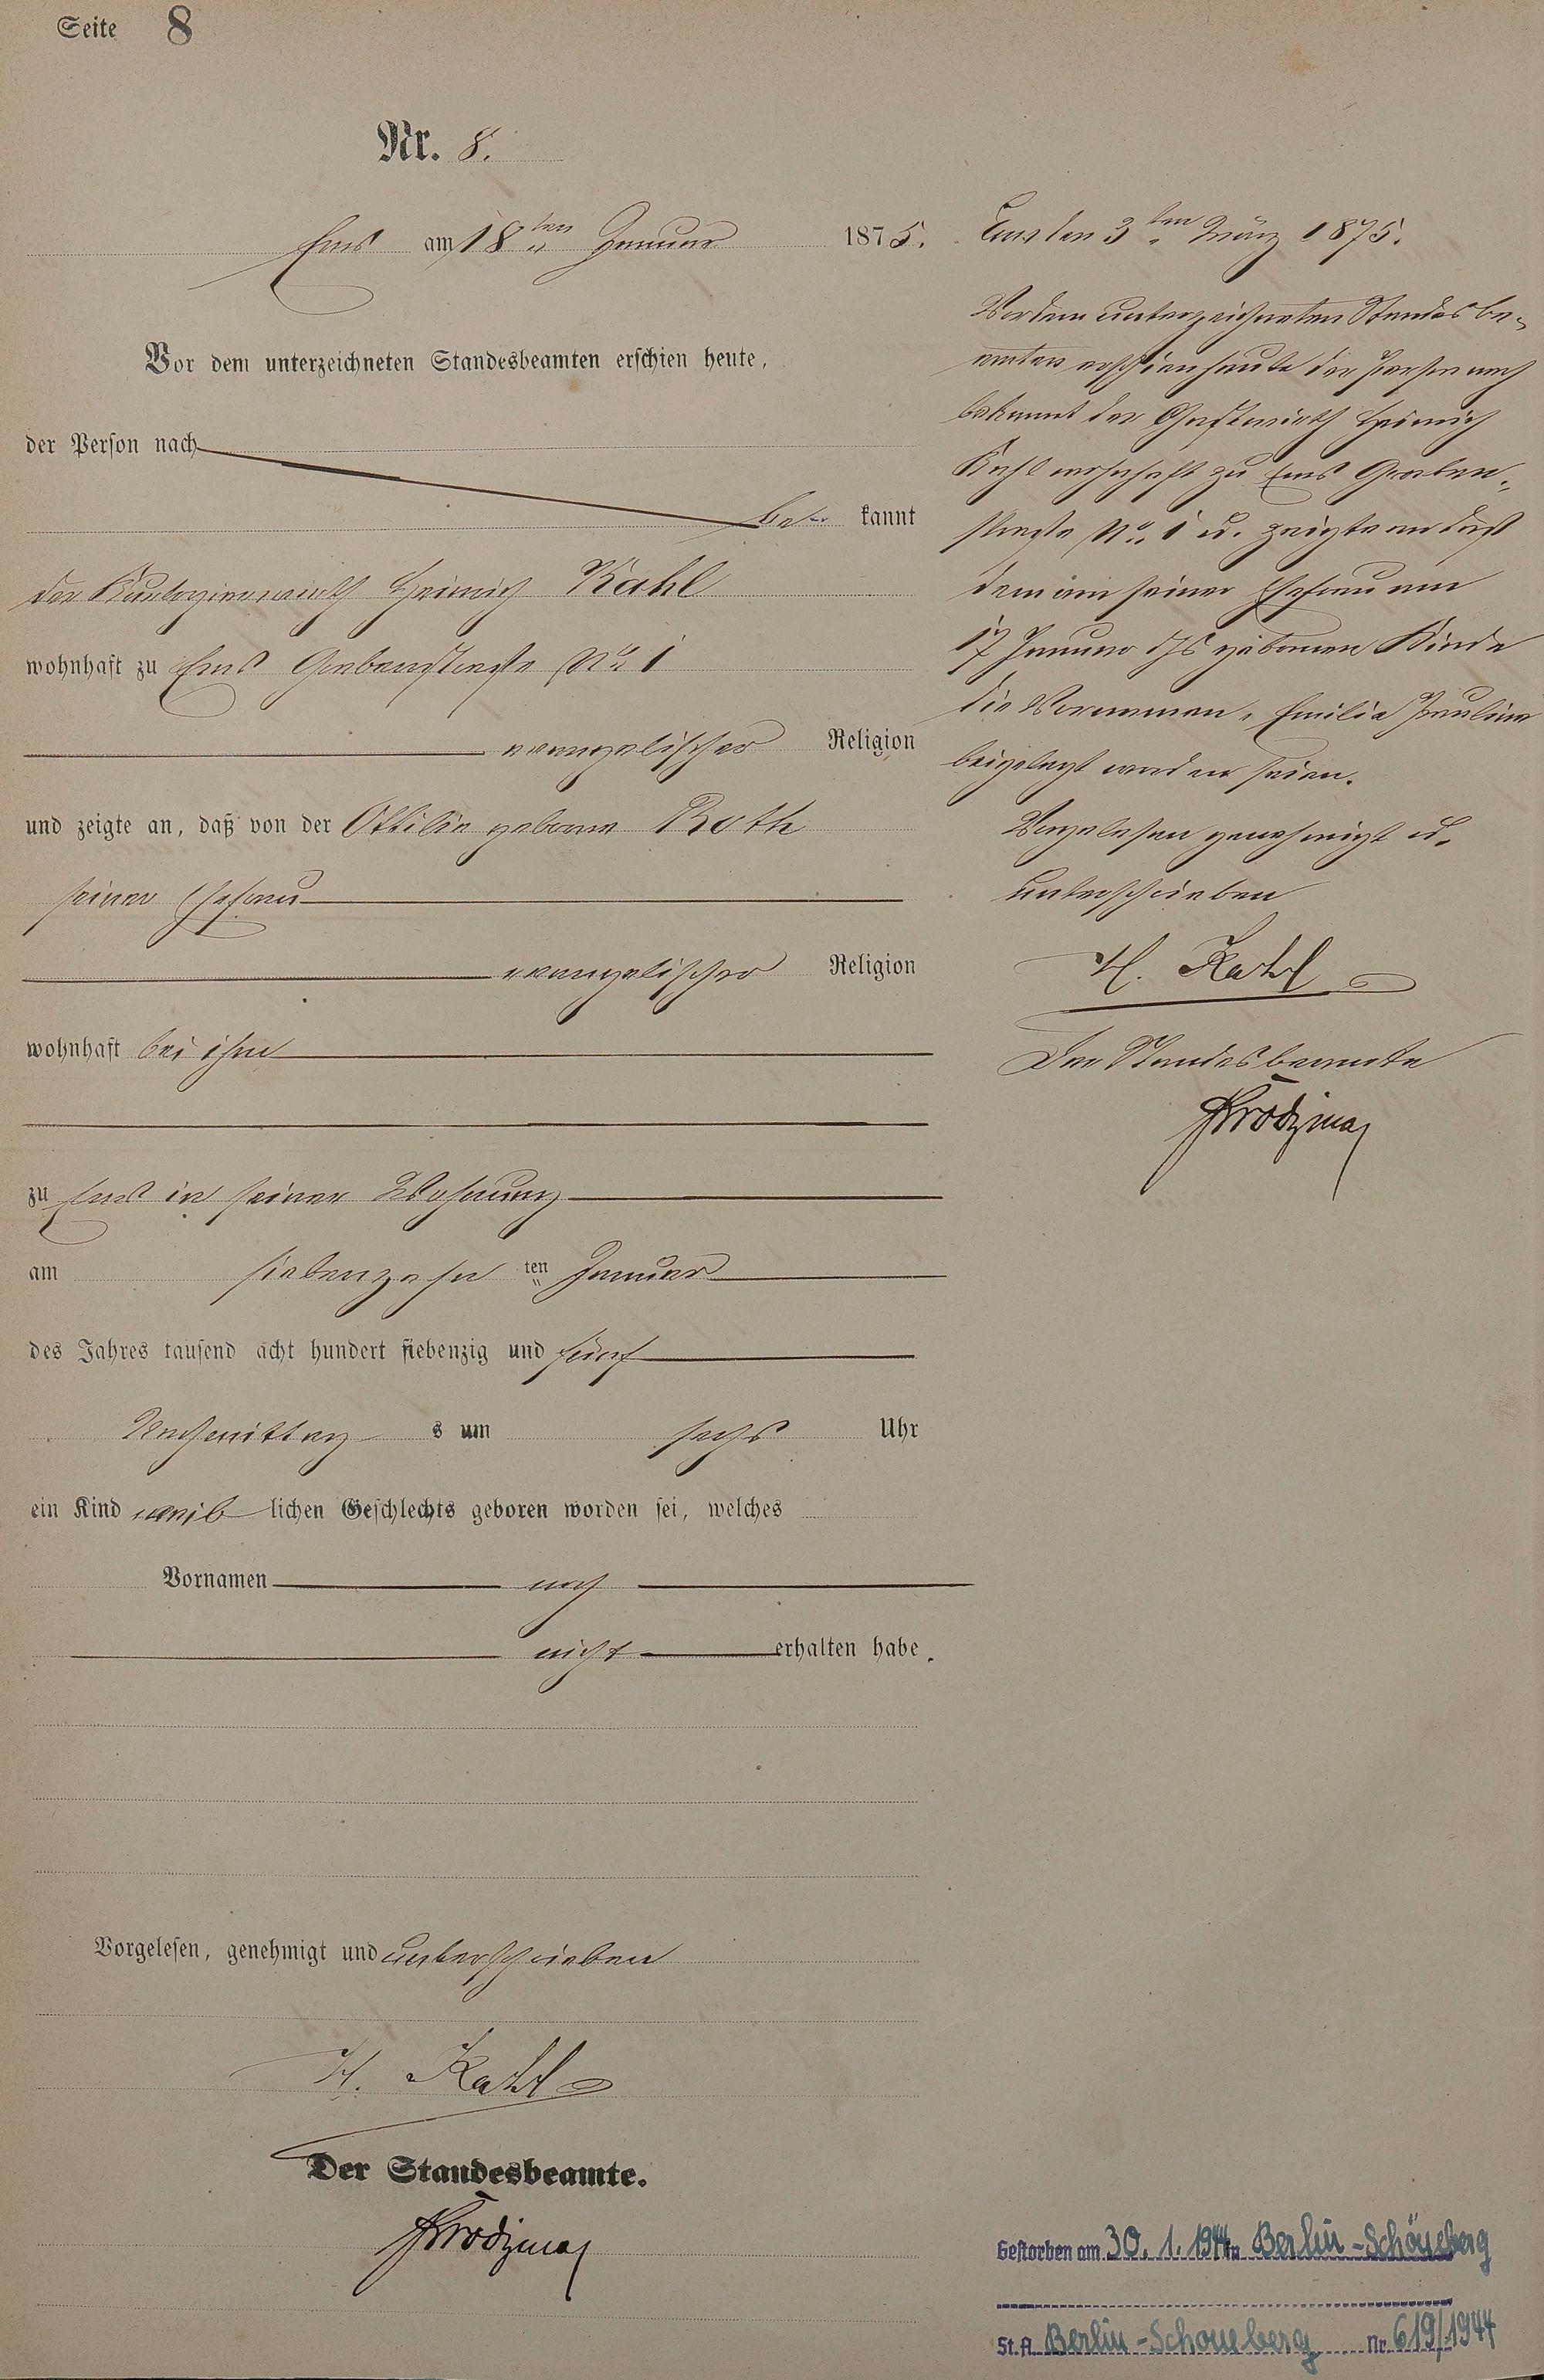 Seite 8
Nr. 8.
Ems am 18ten Januar 1875.
Vor dem unterzeichneten Standesbeamten erschien heute,
der Person nach
be kannt
der Kurlogirwirth Heinrich Kahl
wohnhaft zu Ems Grabenstraße No. 1
evangelischer Religion
und zeigte an, daß von der Ottilie geborne Roth
seiner Ehefrau
evangelischer Religion
wohnhaft bei ihm
zu Ems in seiner Wohnung
am siebenzehn ten Januar
des Jahres tausend acht hundert siebenzig und fünf
Nachmittag s um sechs Uhr
ein Kind weib lichen Geschlechts geboren worden sei, welches
Vornamen noch
nicht erhalten habe.
Vorgelesen, genehmigt und unterschrieben
H. Kahl
Der Standesbeamte.
Ems den 3ten März 1875.
Vor dem unterzeichneten Standesbe-
amten erschien heute der Person nach
bekannt der Gastwirth Heinrich
Kahl wohnhaft zu Ems Graben-
straße No. 1 u. zeigte an daß
dem von seiner Ehefrau am
17 Januar d Js geborenen Kinde
die Vornamen, Emilie Pauline
beigelegt worden seien.
Vorgelesen genehmigt u.
unterschrieben
H. Kahl
Der Standesbeamte
Gestorben am 30. 1. 1944 in Berlin-Schöneberg
St. A. Berlin-Schöneberg Nr. 619/1944